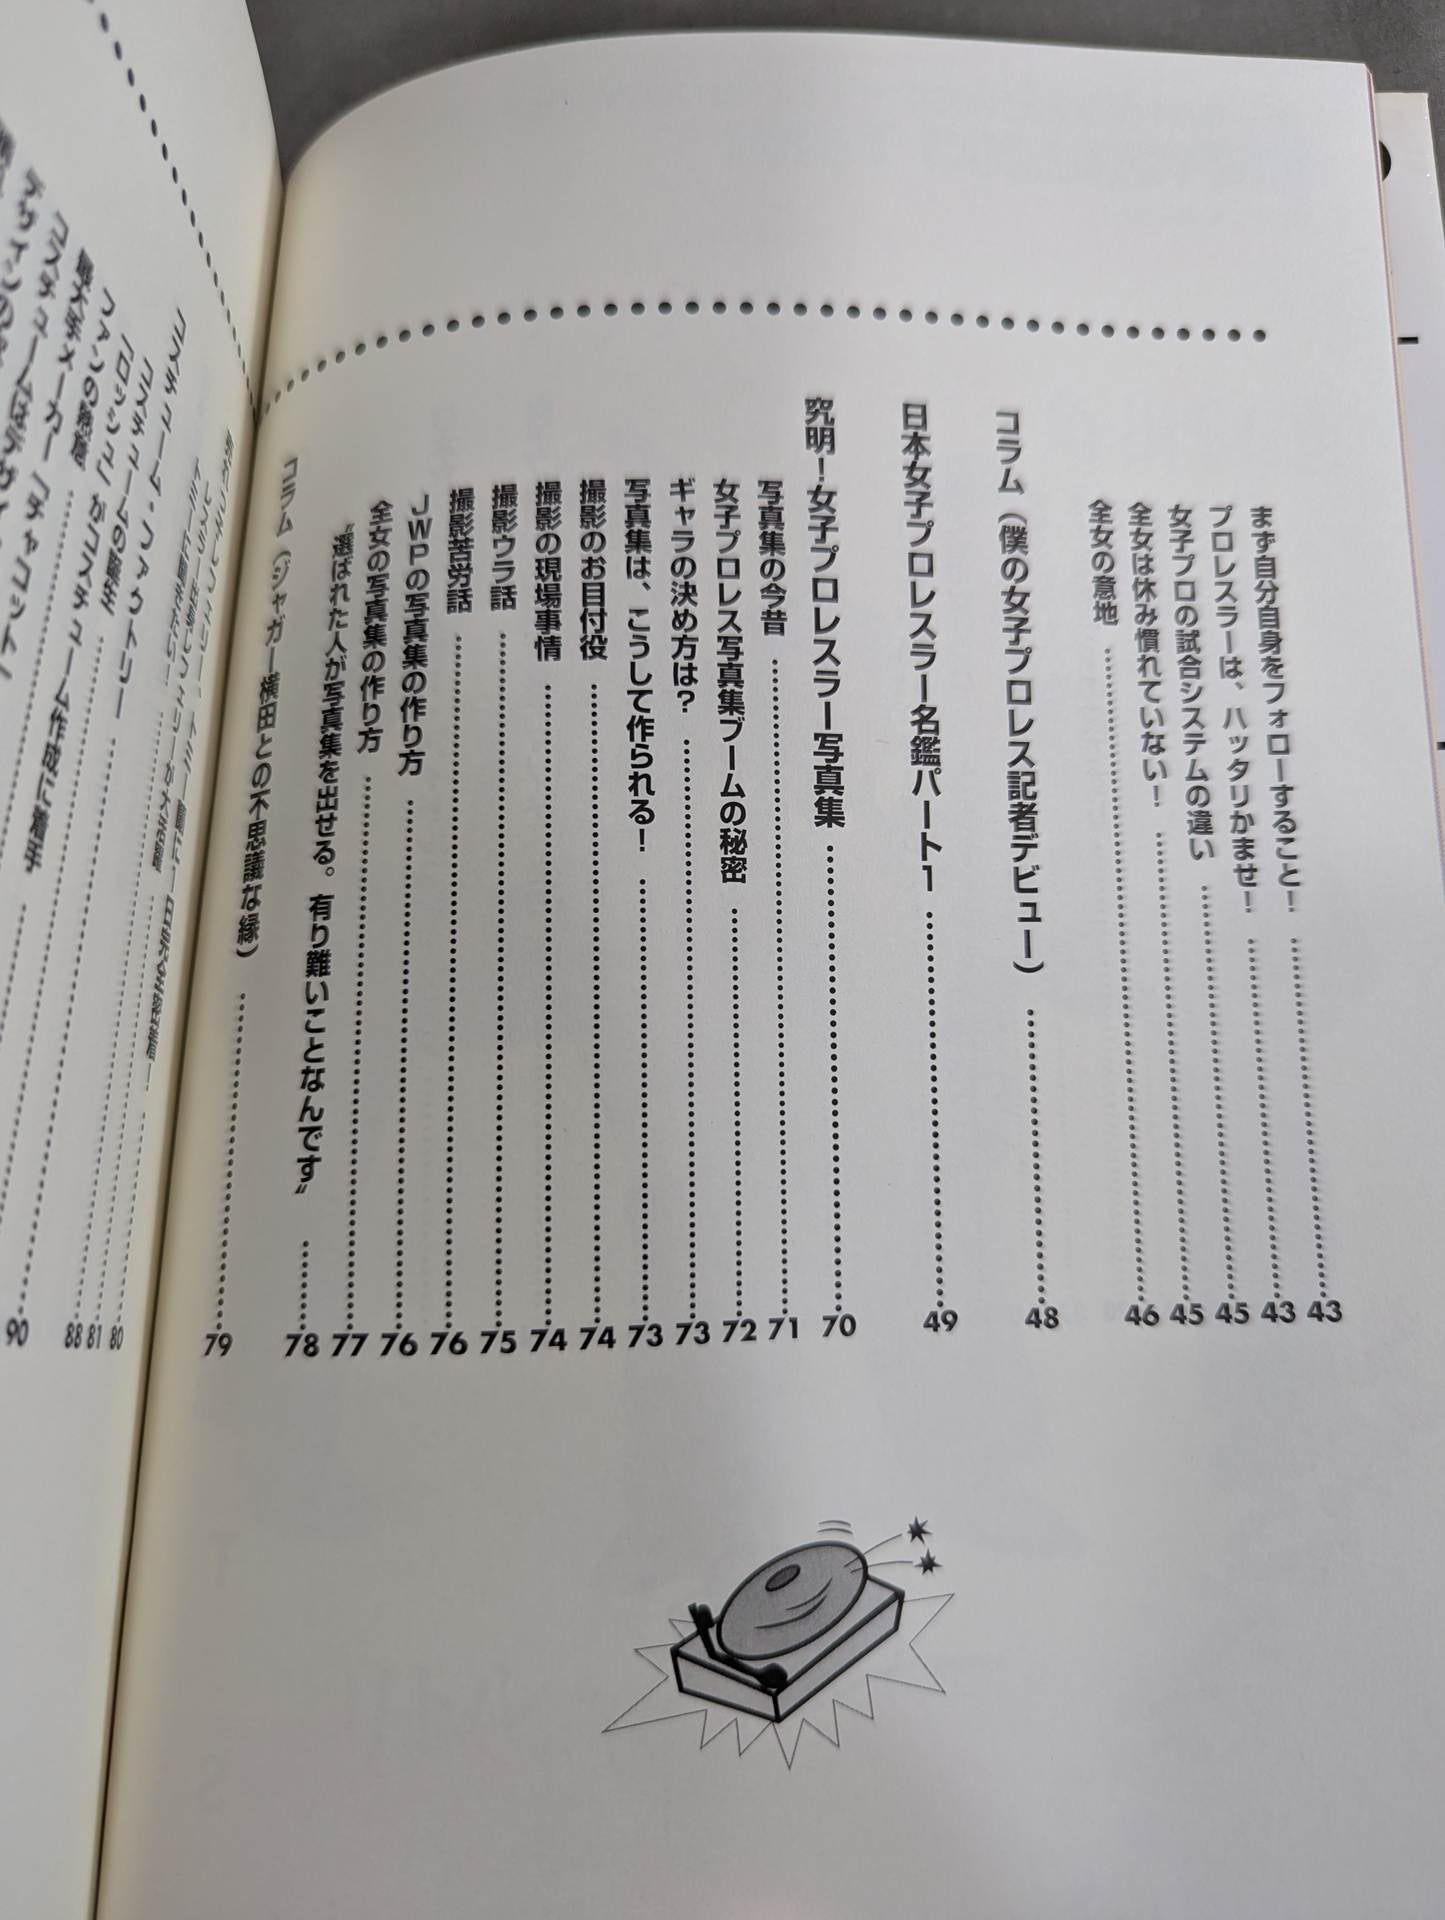 まず自分自身をフォローすること！ 43
プロレスラーは、ハッタリかませ！ 43
女子プロの試合システムの違い 45
全女は休み慣れていない！ 45
全女の意地 46
コラム（僕の女子プロレス記者デビュー） 48
日本女子プロレスラー名鑑パート1 49
究明！女子プロレスラー写真集 70
写真集の今昔 71
女子プロレス写真集ブームの秘密 72
ギャラの決め方は？ 73
写真集は、こうして作られる！ 73
撮影のお目付役 74
撮影の現場事情 74
撮影ウラ話 75
撮影苦労話 76
JWPの写真集の作り方 76
全女の写真集の作り方 77
“選ばれた人が写真集を出せる。有り難いことなんです” 78
コラム（ジャガー横田との不思議な縁） 79
コスチューム・ファクトリー 80
コスチュームの誕生 81
88
90